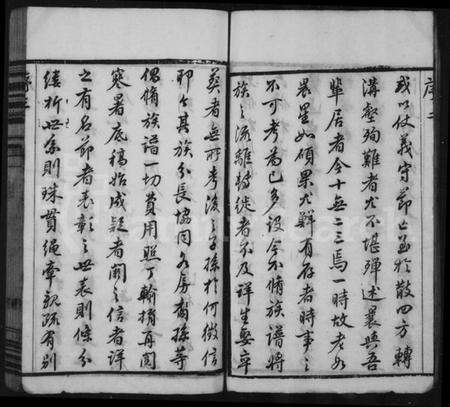 序二
或以仗義守節亡至於散四方轉
溝壑殉難者尤不堪殫述曩與吾
輩居者今十無二三焉一時故老如
晨星如碩果尤鮮有存者時事之
不可考焉已多設今不脩族譜將
族之流離轉徙者不及詳生娶卒
葬者無所考後之子孫於何徵信
耶今其族分長協同各房裔孫等
倡脩族譜一切費用照丁輸捐再閱
寒暑底稿始成疑者闕之信者詳
之有名節者表彰之世表則條分
縷析世系則珠貫繩牽親疏有別